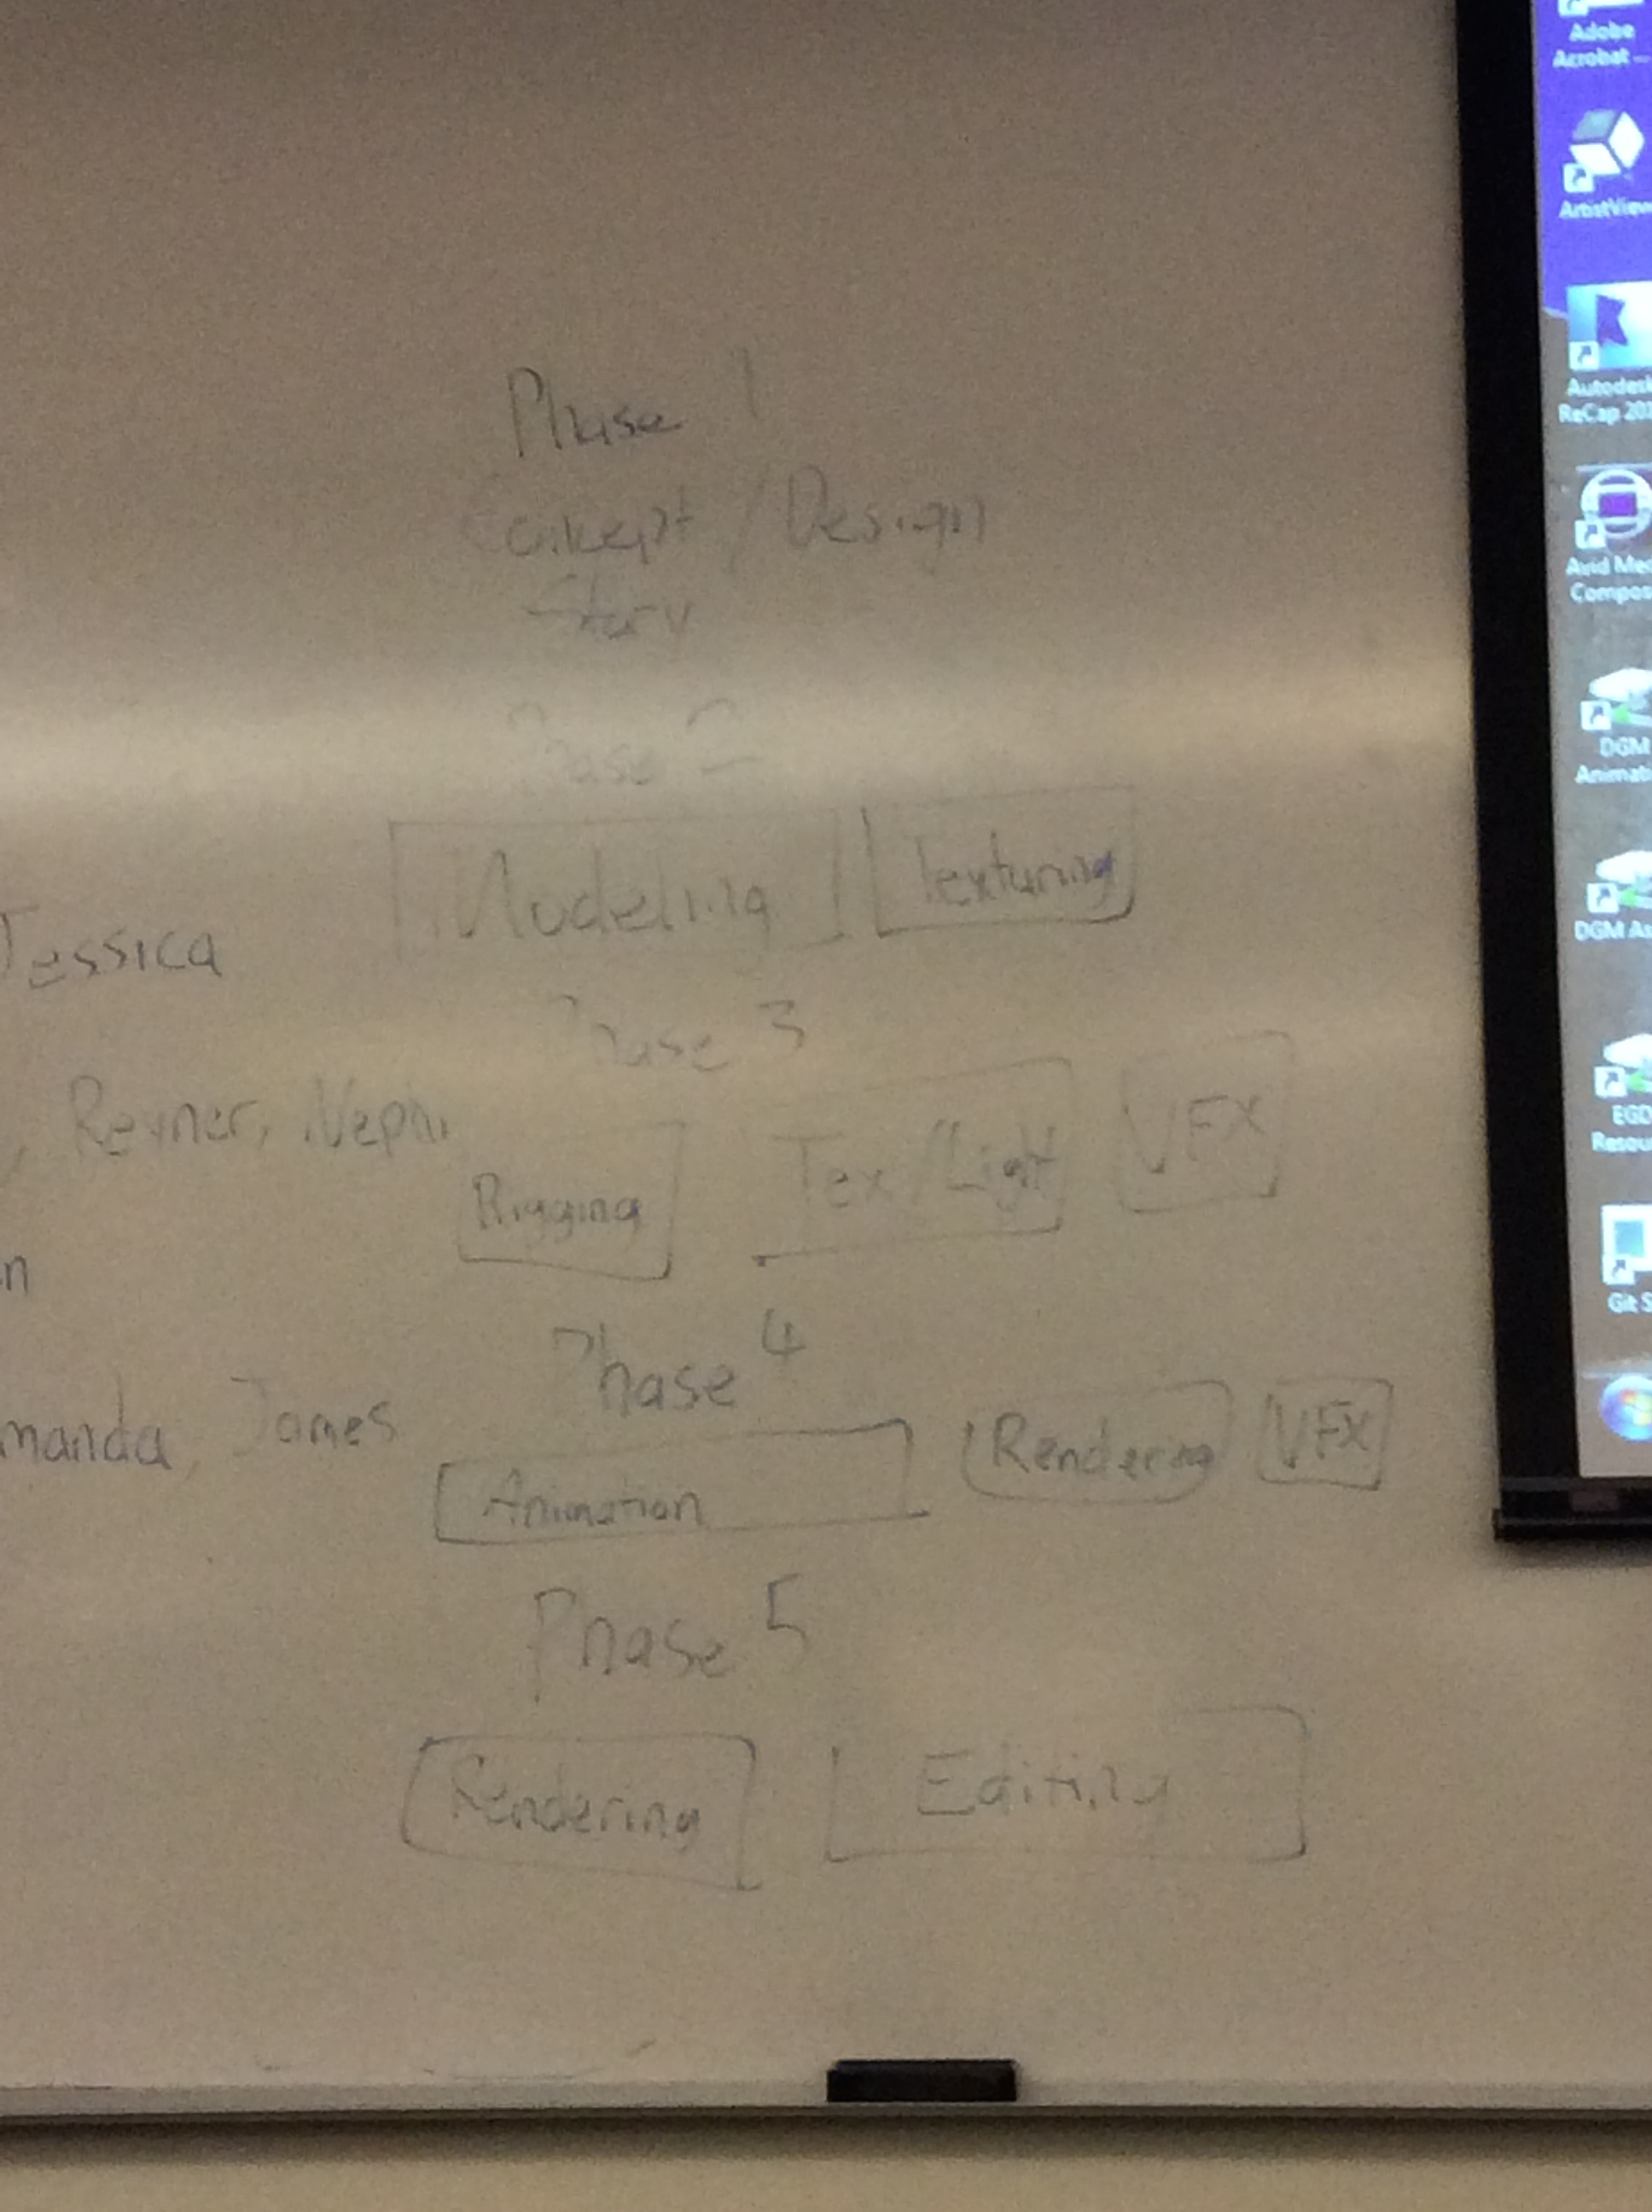 Phase 1
Concept / Design
Story
Phase 2
Modeling Texturing
Jessica
Phase 3
, Reyner, Nephi
Rigging Tex/Light VFX
n
Phase 4
manda, James
Animation Rendering VFX
Phase 5
Rendering Editing
Adobe
Acrobat ...
ArtistView
Autodesk
ReCap 201
Avid Med
Compos
DGM
Animati
DGM As
EGD
Resou
Git S